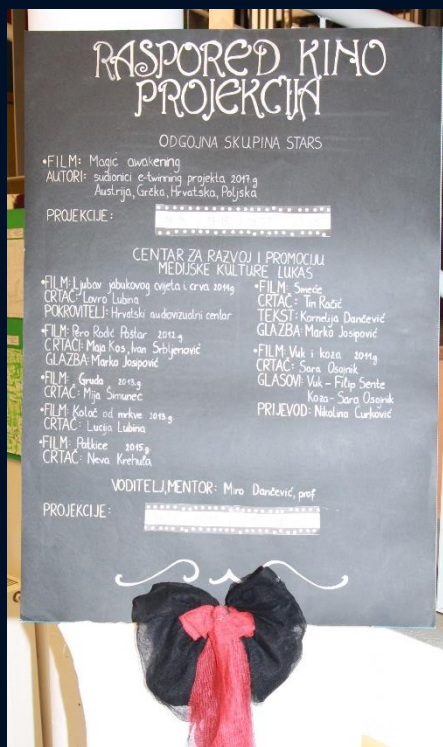 RASPORED KINO
PROJEKCIJA
ODGOJNA SKUPINA STARS
•FILM: Magic awakening
AUTORI: sudionici e-twinning projekta 2017.g
Austrija, Grčka, Hrvatska, Poljska
PROJEKCIJE:
CENTAR ZA RAZVOJ I PROMOCIJU
MEDIJSKE KULTURE LUKAS
•FILM: Ljubav jabukovog cvijeta i crva 2011g
CRTAČ: Lovro Lubina
POKROVITELJ: Hrvatski audiovizualni centar
•FILM: Pero Rodić Poštar 2012.g
CRTAČI: Maja Kos, Ivan Srbljenović
GLAZBA: Marko Josipović
•FILM: Gruda 2013.g
CRTAČ: Mija Šimunec
•FILM: Kolač od mrkve 2013.g
CRTAČ: Lucija Lubina
•FILM: Patkice 2015.g
CRTAČ: Neva Krehula
•FILM: Smeće
CRTAČ: Tin Račić
TEKST: Kornelija Dančević
GLAZBA: Marko Josipović
•FILM: Vuk i koza 2011g
CRTAČ: Sara Osojnik
GLASOVI: Vuk - Filip Šente
Koza - Sara Osojnik
PRIJEVOD: Nikolina Ćurković
VODITELJ, MENTOR: Miro Dančević, prof
PROJEKCIJE: